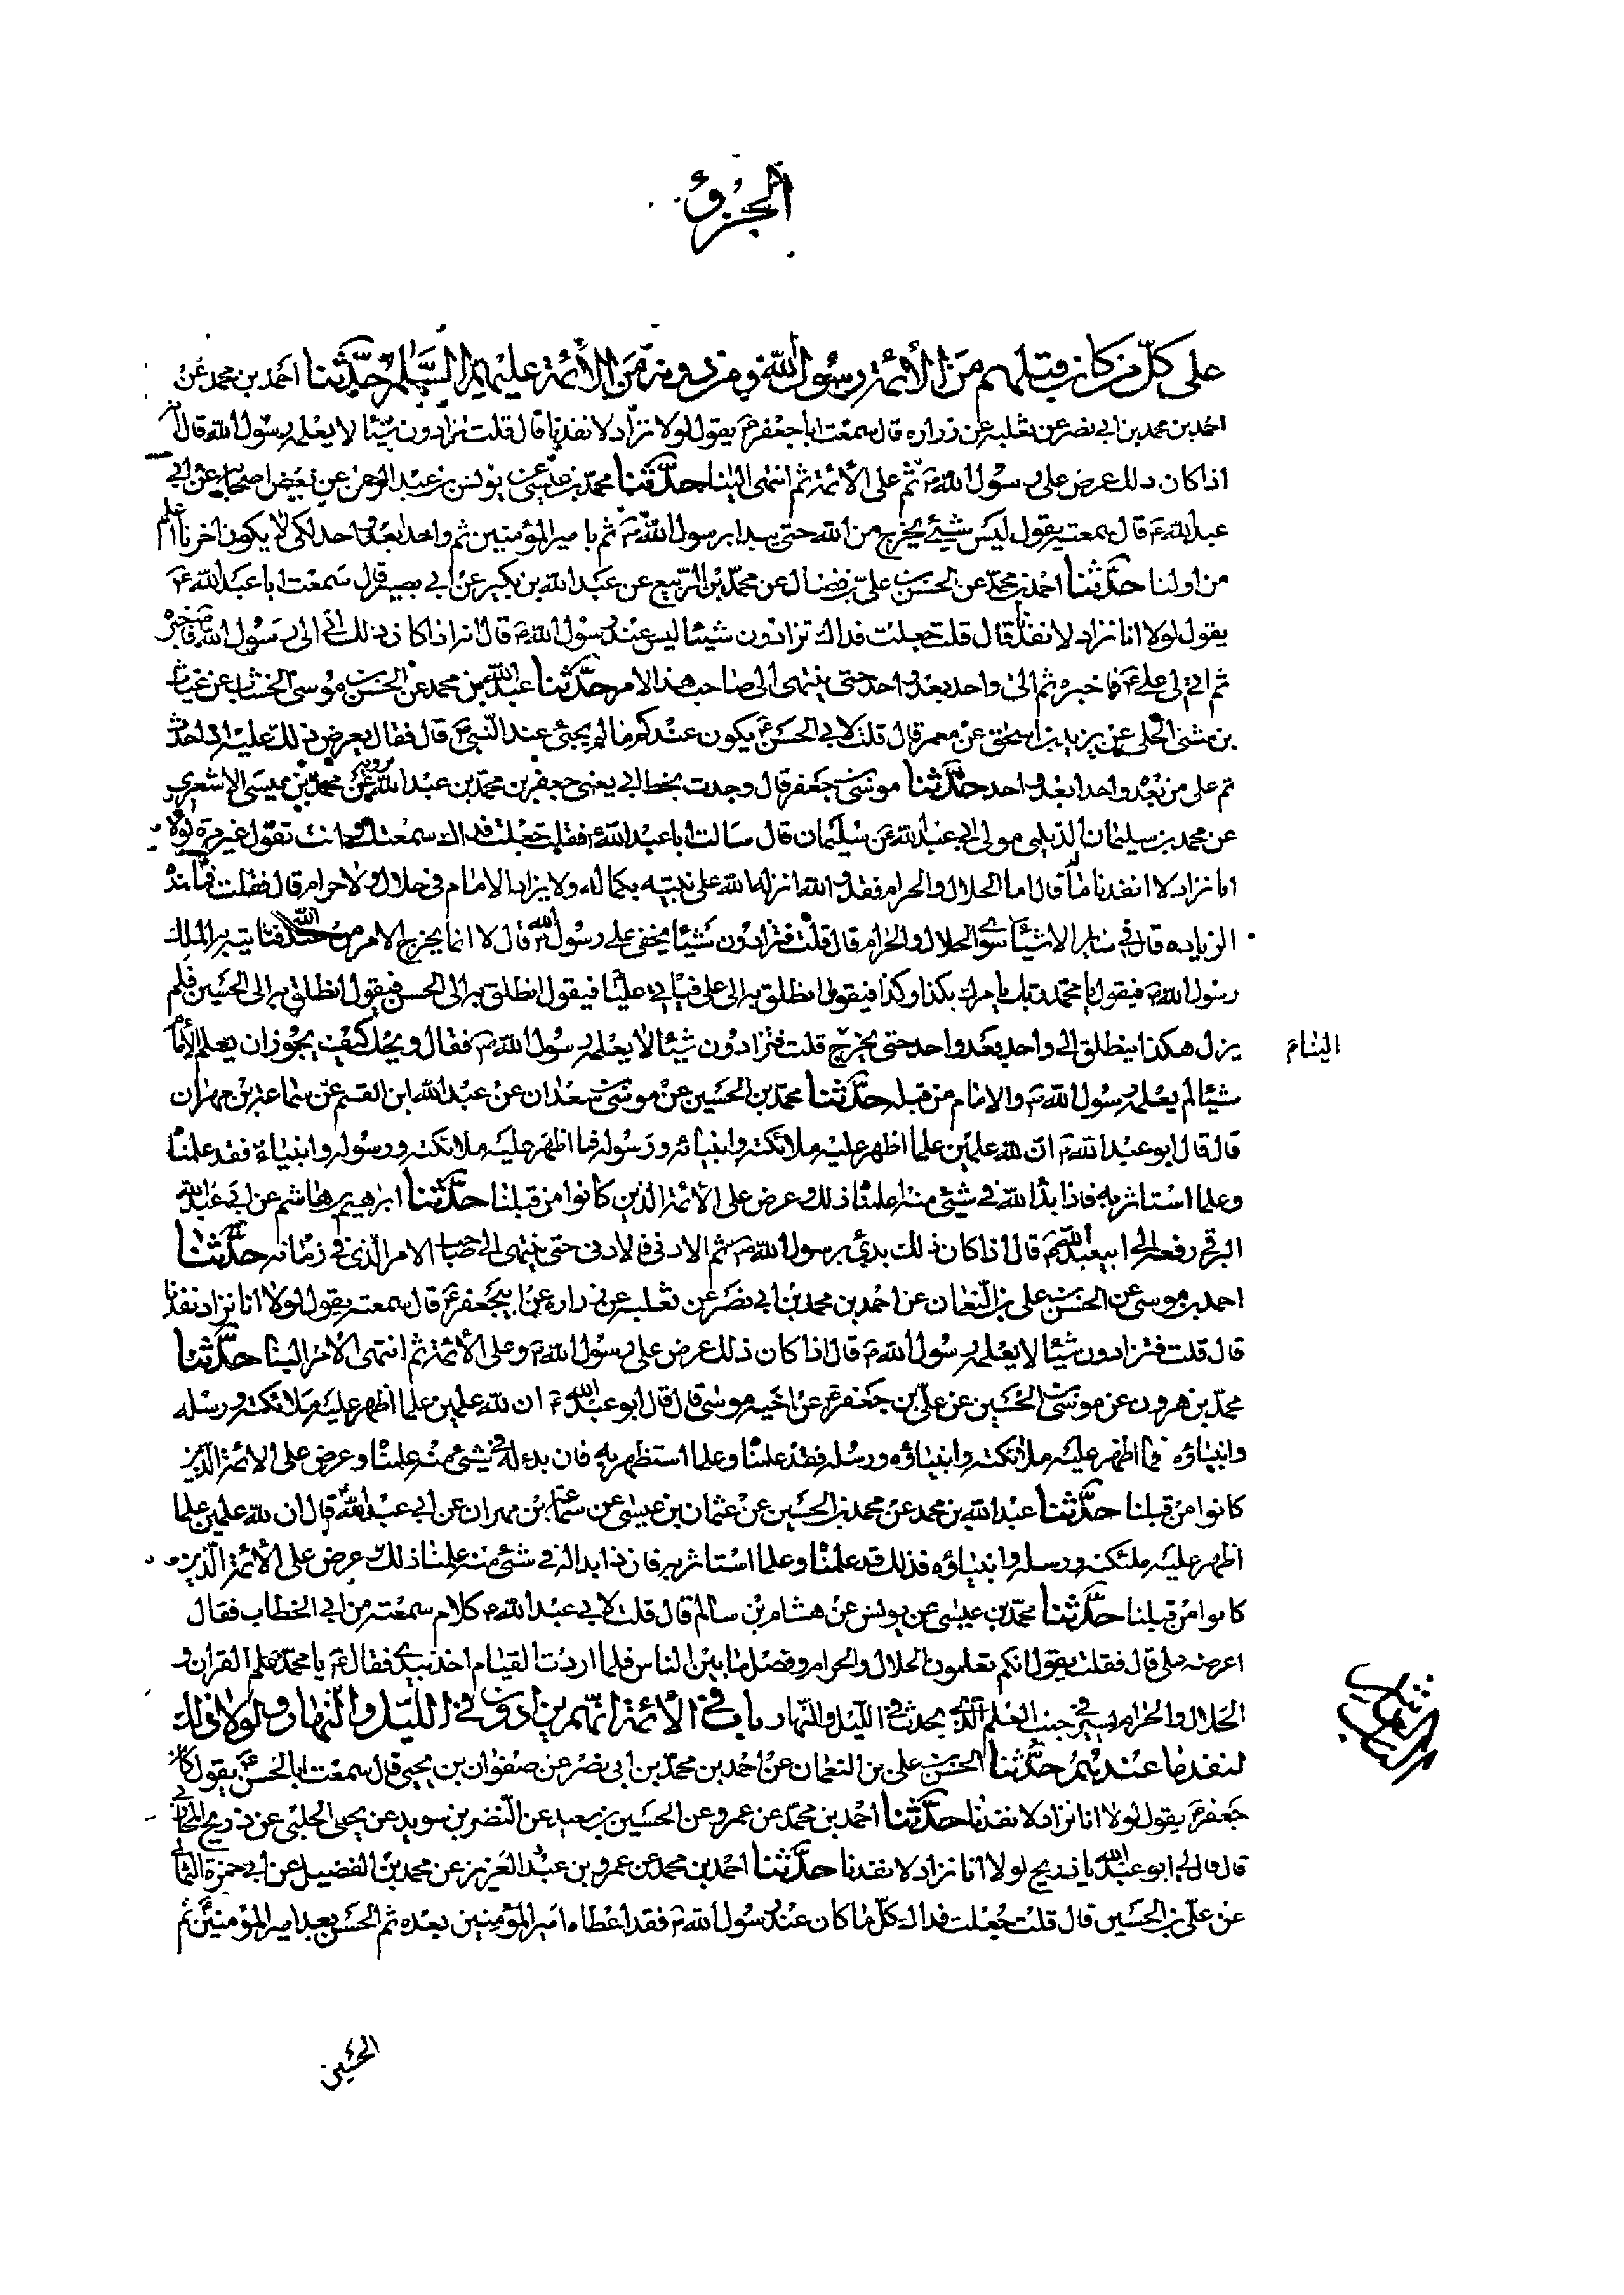 الجزؤ
على كلّ من كان قبلهم من الأئمة رسول الله ومن دونه من الأئمة عليهم السلم حدّثنا احمد بن محمد عن
احمد بن محمد بن ابي نصر عن ثعلبه عن زراره قال سمعت ابا جعفر ع يقول لولا نزاد لانفدنا قال قلت تزادون شيئا لا يعلمه رسول الله قال انه
اذا كان ذلك عرض على رسول الله ص ثم على الأئمة ثم انتهى الينا حدّثنا محمد بن عيسى عن يونس بن عبد الرحمن عن بعض اصحابه عن ابي
عبد الله ع قال سمعته يقول ليس شيئ يخرج من الله حتى يبدا برسول الله ص ثم بامير المؤمنين ثم واحد بعد واحد لكى لا يكون اخرنا اعلم
من اولنا حدّثنا احمد بن محمد عن الحسن بن علي بن فضال عن محمد بن الربيع عن عبد الله بن بكير عن ابي بصير قال سمعت ابا عبد الله ع
يقول لولا انا نزاد لانفدنا قال قلت جعلت فداك تزادون شيئا ليس عند رسول الله ص قال انه اذا كان ذلك اتى الى رسول الله ص فاخبره
ثم اتى الى علي ع فاخبره ثم الى واحد بعد واحد حتى ينتهى الى صاحب هذا الامر حدّثنا عبد الله بن محمد عن الحسن بن موسى الخشاب عن غياث
بن مثنى الحلبى عن يزيد بن اسحق عن معمر قال قلت لابي الحسن ع يكون عندكم ما لم يجئ عند النبي ص قال فقال يعرض ذلك عليه اذا حدث
ثم على من بعد واحدا بعد واحد حدّثنا موسى بن جعفر قال وجدت بخط ابي يعنى جعفر بن محمد بن عبد الله يرويه عن محمد بن عيسى الاشعري
عن محمد بن سليمان الديلمي مولى ابي عبد الله عن سليمان قال سالت ابا عبد الله ع فقلت جعلت فداك سمعتك وانت تقول غير مرة لولا
انا نزاد لا انفدنا قال اما الحلال والحرام فقد والله انزله الله على نبيه بكماله ولا يزاد الامام في حلال ولا حرام قال فقلت فما هذه
الزياده قال في ساير الاشياء سوى الحلال والحرام قال قلت فتزادون شيئا يخفى على رسول الله ص قال لا انما يخرج الامر من عند الله فتاتيه به الملك
رسول الله ص فيقول يا محمد ربك يامرك بكذا وكذا فيقول انطلق به الى على فياتي عليا فيقول انطلق به الى الحسن فيقول انطلق به الى الحسين فلم
يزل هكذا ينطلق الى واحد بعد واحد حتى يخرج قلت فتزادون شيئا لا يعلمه رسول الله ص فقال ويحك كيف يجوز ان يعلم الأمام
الينا م
شيئا لم يعلمه رسول الله ص والامام من قبله حدّثنا محمد بن الحسين عن موسى بن سعدان عن عبد الله ابن القسم عن سماعة بن مهران
قال قال ابو عبد الله ع ان لله علمين علما اظهر عليه ملائكته وانبيائه ورسوله فما اظهر عليه ملائكته ورسوله وانبياءه فقد علمنا
وعلما استاثر به فاذا بدا لله في شيئ منه اعلمنا ذلك وعرض على الائمة الذين كانوا من قبلنا حدّثنا ابرهيم بن هاشم عن ابي عبد الله
البرقي رفعه الى ابي عبد الله ع قال اذا كان ذلك بدئ برسول الله ص ثم الادنى فالادنى حتى ينتهى الى صاحب الامر الذي في زمانه حدّثنا
احمد بن موسى عن الحسن بن علي بن النعمان عن احمد بن محمد بن ابي نصر عن ثعلبه عن زراره عن ابي جعفر ع قال سمعته يقول لولا انا نزاد نفدنا
قال قلت فتزادون شيئا لا يعلمه رسول الله ص قال اذا كان ذلك عرض على رسول الله ص وعلى الأئمة ثم انتهى الامر الينا حدّثنا
محمد بن هرون عن موسى بن الحسين عن علي بن جعفر ع عن اخيه موسى قال قال ابو عبد الله ع ان لله علمين علما اظهر عليه ملائكته ورسله
وانبياؤه فما اظهر عليه ملائكته وانبياؤه ورسله فقد علمنا وعلما استظهر به فان بدء له في شيئ منه علمنا وعرض على الائمة الذين
كانوا من قبلنا حدّثنا عبد الله بن محمد عن محمد بن الحسين عن عثمان بن عيسى عن سماعة بن مهران عن ابي عبد الله ع قال ان لله علمين علما
اظهر عليه ملئكته ورسله وانبياؤه فذلك قد علمنا وعلما استاثر به فان ذا بدا له في شئ منه علمنا ذلك عرض على الأئمة الذين
كانوا من قبلنا حدّثنا محمد بن عيسى عن يونس عن هشام بن سالم قال قلت لابي عبد الله ع كلام سمعته من ابي الخطاب فقال
اعرضه على قال فقلت يقول انكم تعلمون الحلال والحرام وفصل ما بين الناس فلما اردت القيام اخذ بيدي فقال ع يا محمد علم القران و
الحلال والحرام يسير في جنب العلم الذي يحدث في الليل والنهار باب في الأئمة انهم يزادون في الليل والنهار ولولا ذلك
لنفد ما عندهم حدّثنا الحسن بن علي بن النعمان عن احمد بن محمد بن ابي نصر عن صفوان بن يحيى قال سمعت ابا الحسن ع يقول كان
جعفر ع يقول لولا انا نزاد لانفدنا حدّثنا احمد بن محمد عن عمرو عن الحسين بن سعيد عن النضر بن سويد عن يحيى الحلبي عن ذريح المحاربي
قال قال لي ابو عبد الله يا ذريح لولا انا نزاد لانفدنا حدّثنا احمد بن محمد عن عمرو بن عبد العزيز عن محمد بن الفضيل عن ابي حمزة الثمالي
عن علي بن الحسين قال قلت جعلت فداك كلّ ما كان عند رسول الله ص فقد اعطاه امير المؤمنين بعده ثم الحسن بعد امير المؤمنين ثم
الحسين